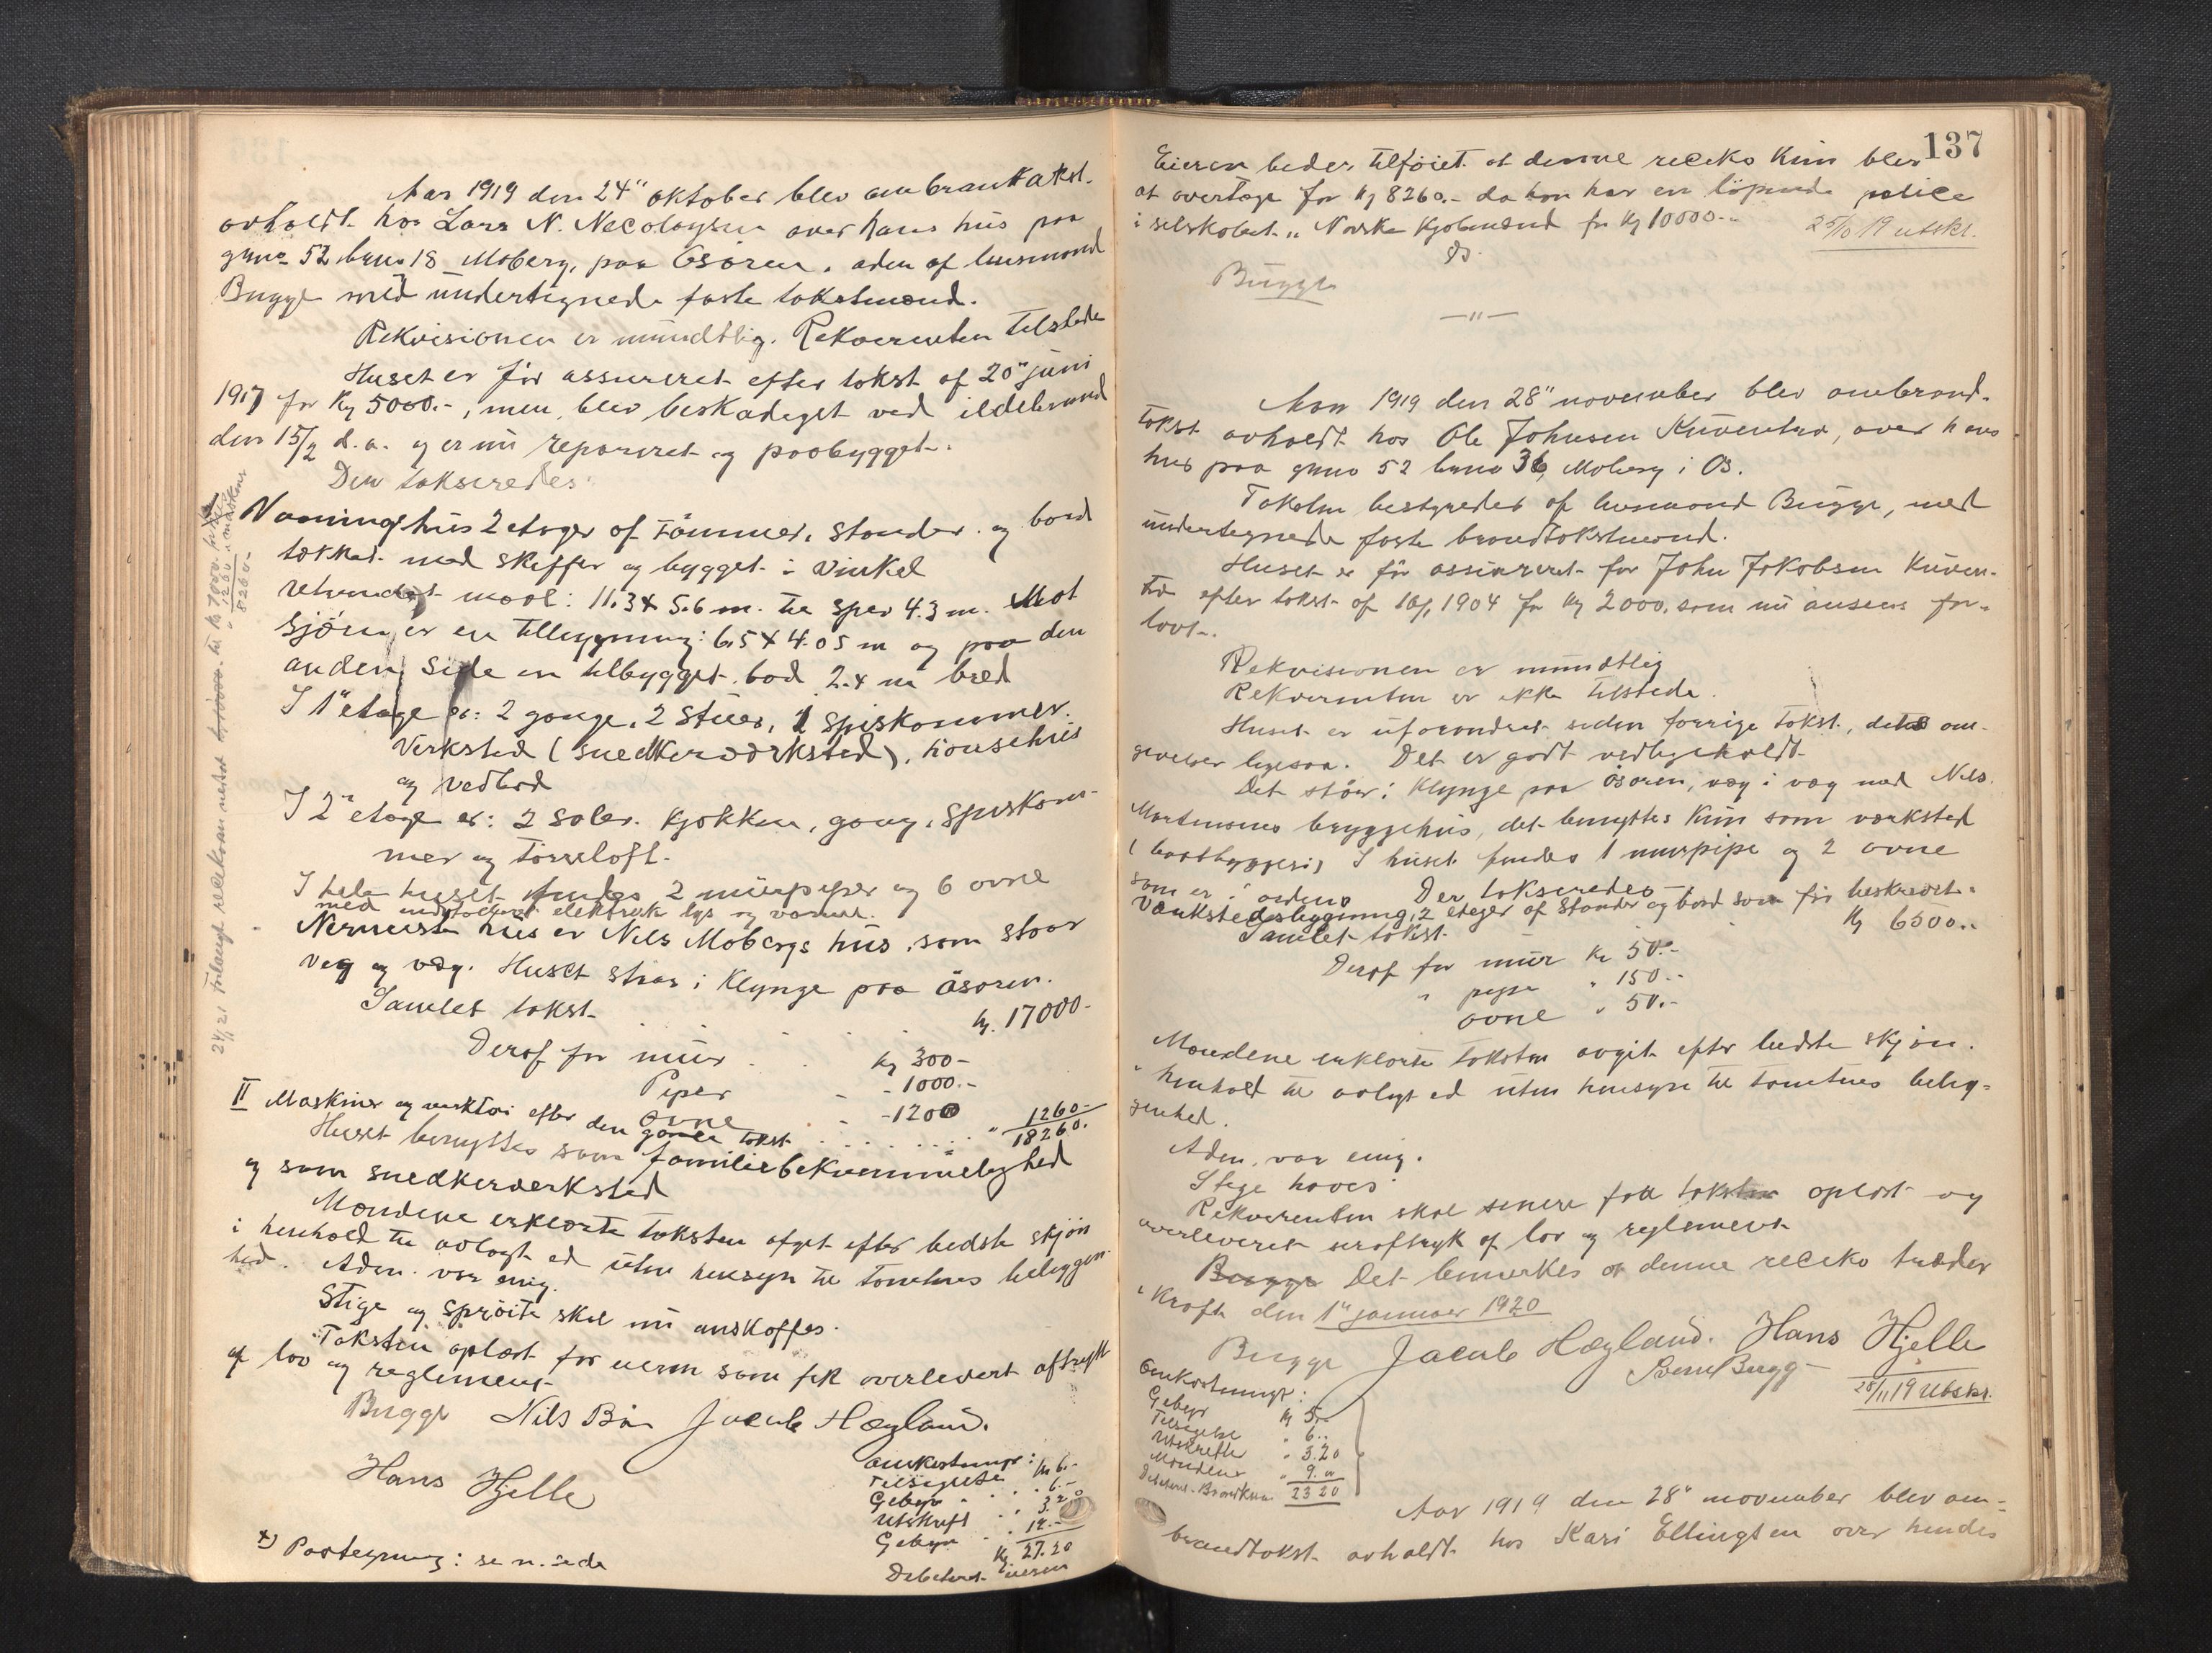 Aar 1919 den 24" oktober blev ombrandtakst.
avholdt hos Lars N. Necolaysen over hans hus paa
gnro 52 brno 18 Moberg, paa Osören, aden af lensmand
Bugge med undertegnede faste takstmænd.
Rekvisionen er mundtlig. Rekvirenten tilstede
Huset er før assureret efter takst af 20" juni
1917 for Kr 5000.-, men blev beskadiget ved ildebrand
den 15/2 d.a. og er nu reparert og paabygget.
Der takseredes:
Vaaningshus 2 etager af Tömmer, stander og bord
tækket med skiffer og bygget i vinkel
utvendigt maal: 11.3 x 5.6 m. til sper 4.3 m. Mot
Sjøen er en tilbygning: 6.5 x 4.05 m og paa den
anden side en tilbygget bod 2.4 m bred
I 1" etage er: 2 gange, 2 Stuer, 1 spiskammer.
Verksted (snedkerværksted), hönsehus
og vedbod
I 2" etage er: 2 saler. Kjøkken, gang, spiskam-
mer og tørreloft.
I hele huset findes 2 murpiper og 6 ovne
med indstalleret elektrisk lys og varme.
Nermeste hus er Nils Mobergs hus, som staar
veg og væg. Huset staar i Klynge paa Åsoren.
Samlet takst Kr. 17000-
Deraf for mur Kr 300-
Piper - 1000.-
ovne - 1200
II Maskiner og verktöi efter den gamle takst " 1260-
18260.
Huset benyttes som familiebekvemmelighed
og som snedkerverksted
Mændene erklærte taksten afgit efter bedste skjön
i henhold til avlagt ed uten hensyn til tomtens beliggen-
hed. Aden. var enig.
Stige og Spröite skal nu anskaffes.
Taksten oplæst for eieren som fik overlevert aftrykk
af lov og reglement
Bugge Nils Bö Jacob Hægland.
Hans Hjelle
Omkostninger:
Tilsigelse Kr 6.-
Gebyr " 6.-
Utskrift " 3.20
Gebyr " 12.-
Kr 27.20
Debeteret eieren
x) Paategning: se n. side
24/11 21 forlangt reduksjon
8260-
137
Eieren beder tilføiet at denne reciko kun blev
at overtage for Kr 8260.- da han har en löpende police
i selskabet "Norske Kjøbmænd for Kr 10000.-
25/10 19 utskr.
Ds.
Bugge
—"—
Aar 1919 den 28" november blev ombrand-
takst avholdt hos Ole Johnsen Kuventræ, over hans
hus paa gnro 52 brno 36, Moberg i Os.
Taksten bestyredes af lensmand Bugge, med
undertegnede faste brandtakstmænd.
Huset er för assureret for John Jakobsen Kuven-
træ efter takst af 1904 for Kr 2000. som nu ansees for-
lavt.
Rekvisionen er mundtlig
Rekvirenten er ikke tilstede.
Huset er uforandret siden forrige takst, dets om-
givelser ligesaa. Det er godt vedligeholdt.
Det står i Klynge paa Åsoren, væg i væg med Nils
Mortensens bryggehus, det benyttes kun som værksted
(baatbyggeri) I huset findes 1 murpipe og 2 ovne
som er i orden. Der takseredes
Værkstedsbygning, 2 etager af Stander og bord som för beskrevet.
Samlet takst Kr 6500.-
Deraf for mur Kr 50.-
" pipe " 150.-
ovne " 50.-
Mændene erklærte taksten avgit efter bedste skjön.
i henhold til avlagt ed uten hensyn til tomtens belig-
genhed.
Aden. var enig.
Stige haves
Rekvirenten skal senere faa taksten oplæst og
overleveret særaftryk af lov og reglement
Bugge Det bemerkes at denne reciko træder
i kraft den 1" januar 1920
Bugge Jacob Hægland. Hans Hjelle
28/11 19 Utskr.
Omkostninger:
Gebyr Kr 5.-
Tilsigelse " 6.-
Utskrift " 3.20
Mændene " 9.-
23 20
Aar 1919 den 28" november blev om-
brandtakst avholdt hos Kari Ellingsen over hendes